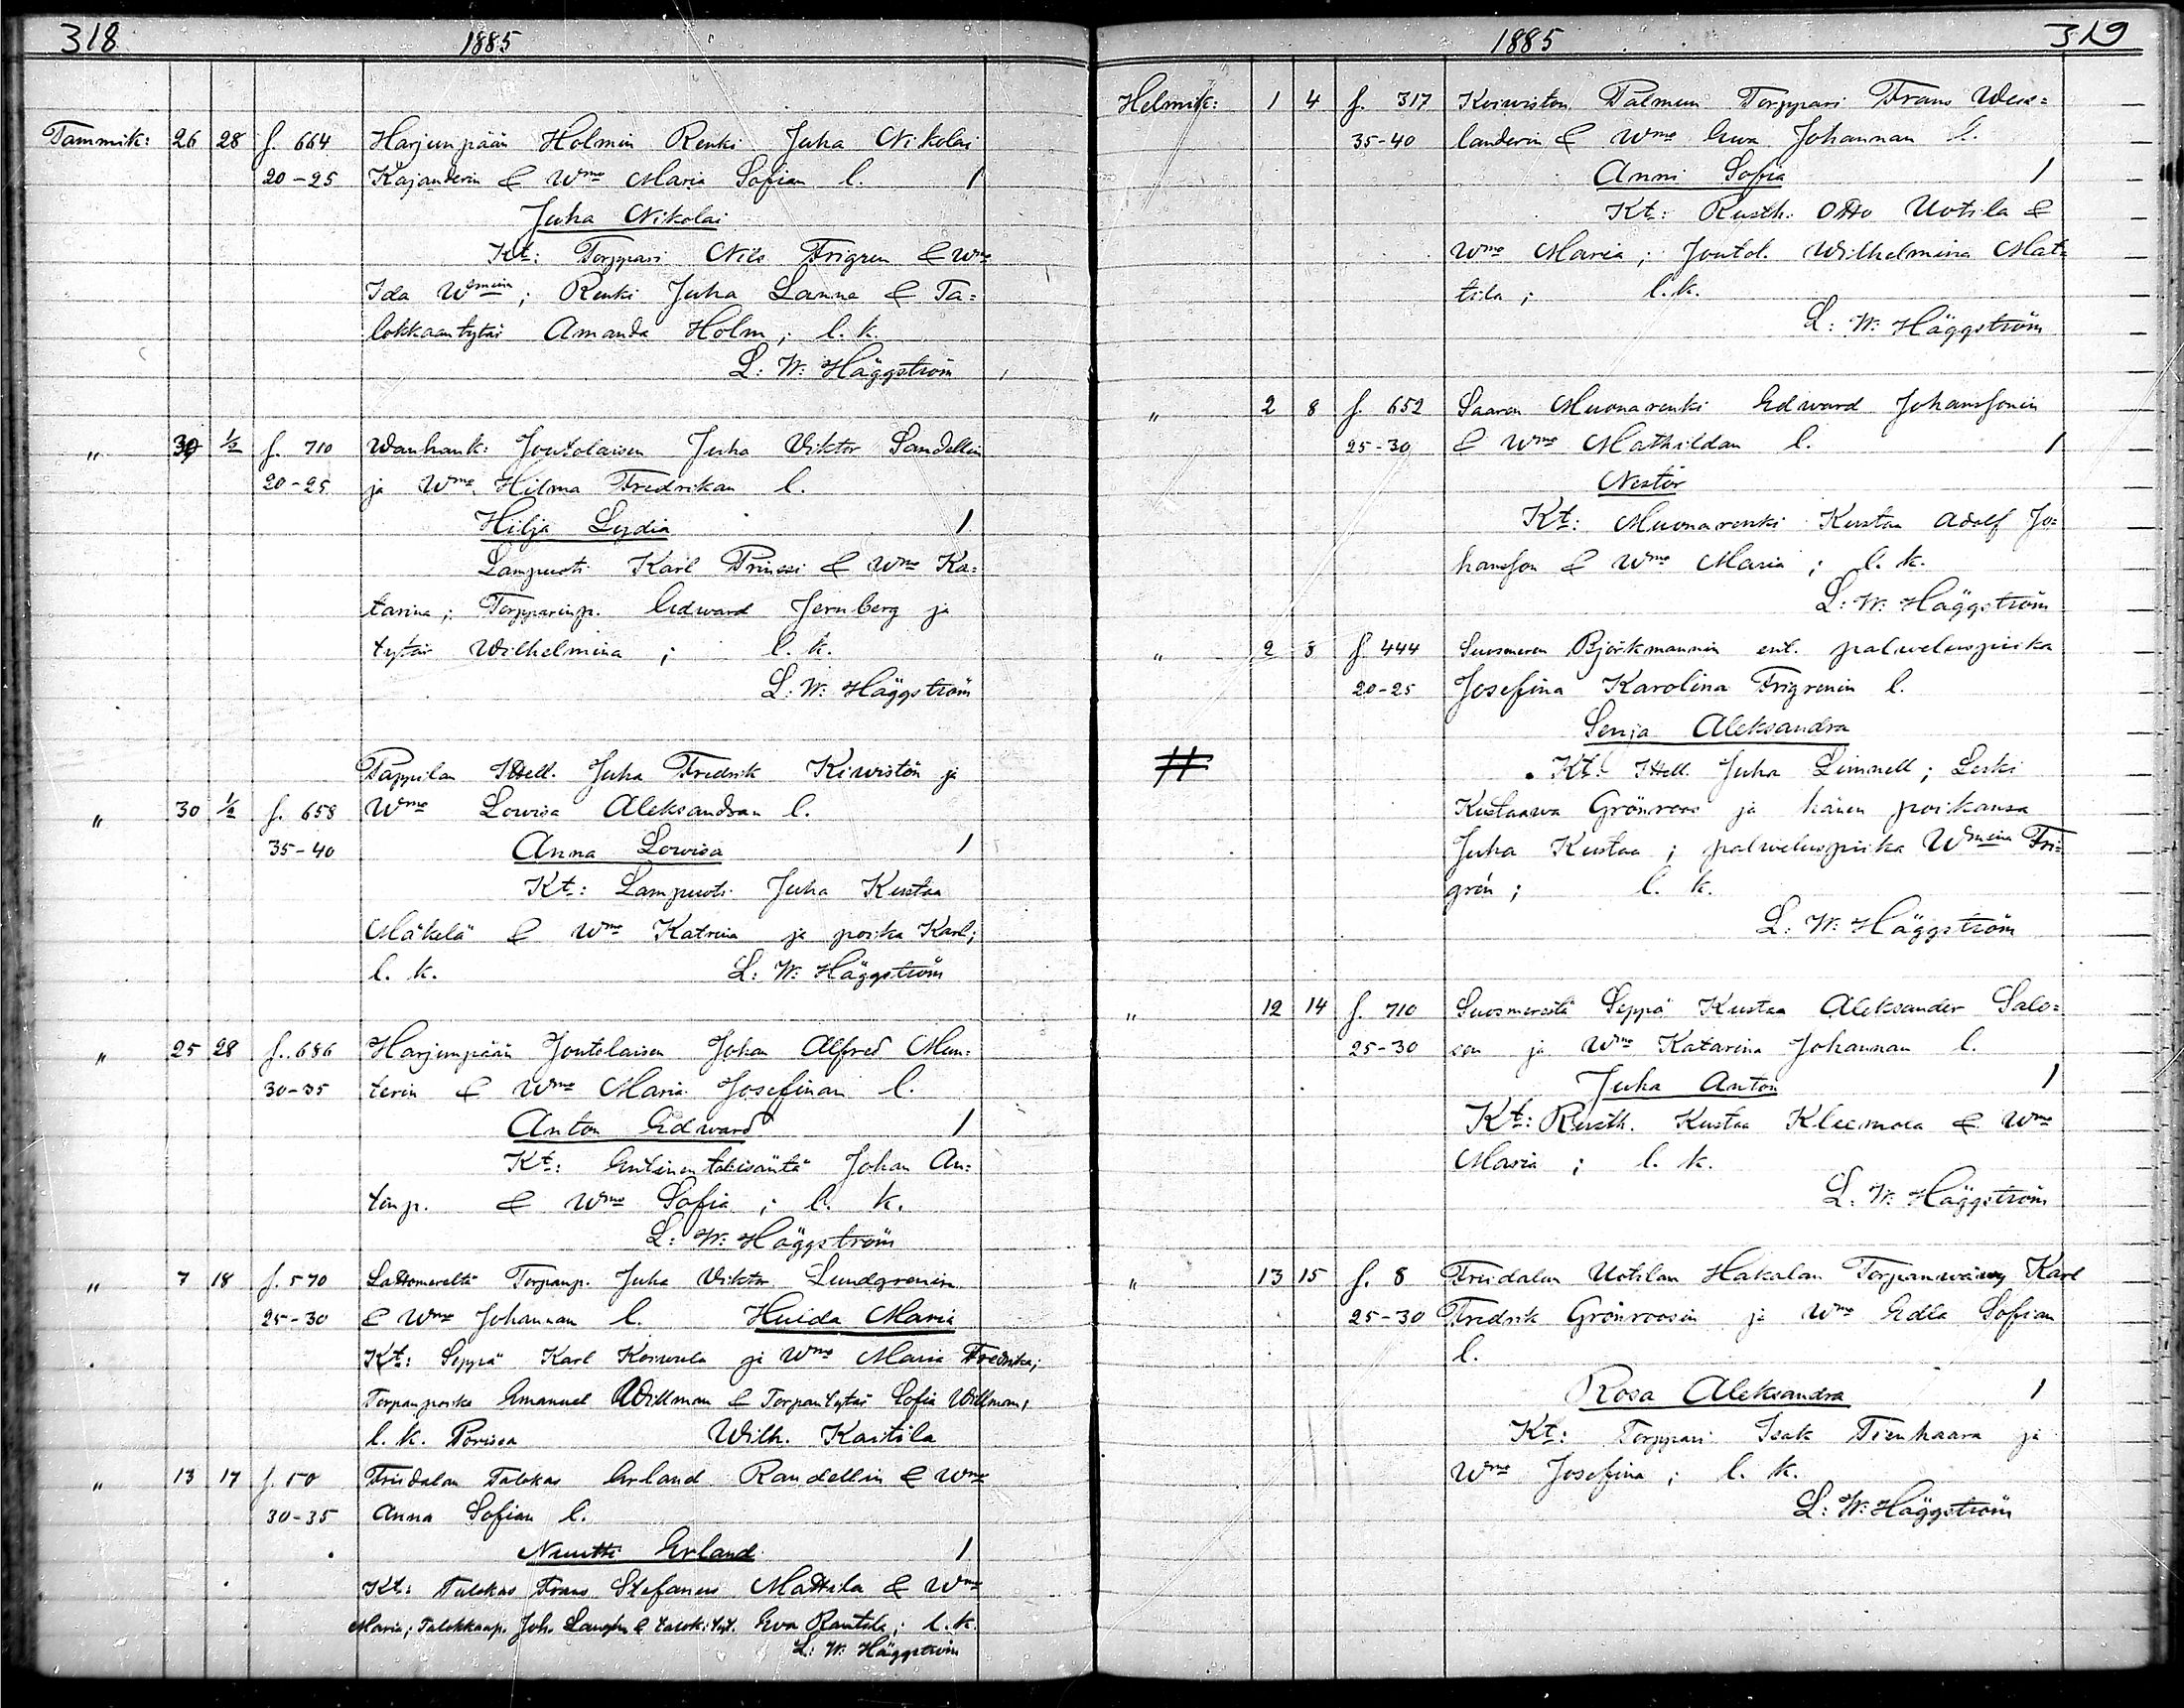 318
1885
Tammik: 26 28 f. 664 Harjunpään Holmin Renki Juha Nikolai
20-25 Kajanderin & Wmo Maria Sofian l. 1
Juha Nikolai
Kt: Torppari Nils Frigren & Wmo
Ida Wmina; Renki Juha Lanne & Ta=
lokkaantytär Amanda Holm; l. k.
L: W: Häggström
" 30 1/2 f. 710 Wanhank: Joutolaisen Juha Viktor Sandellin
20-25 ja Wmo Hilma Fredrikan l.
Hilja Lydia 1
Lampuoti Karl Prinssi & Wmo Ka=
tarina; Torpparinp. Edward Jernberg ja
tytär Wilhelmina; l. k.
L: W: Häggström
Pappilan Ittell. Juha Fredrik Kiwistön ja
" 30 1/2 f. 658 Wmo Lowisa Aleksandran l.
35-40 Anna Lowisa 1
Kt: Lampuoti Juha Kustaa
Mäkelä & Wmo Katrina ja poika Karl;
l. k. L: W: Häggström
" 25 28 f. 686 Harjunpään Joutolaisen Johan Alfred Mun=
30-35 terin & Wmo Maria Josefinan l.
Anton Edward 1
Kt: Entinen talisäntä Johan An=
tinp. & Wmo Sofia; l. k.
L: W: Häggström
" 7 18 f. 570 Lattomereltä Torpanp. Juha Viktor Lundgrenin
25-30 & Wmo Johannan l. Hulda Maria
Kt: Seppä Karl Koiwula ja Wmo Maria Fredrika;
Torpanpoika Emanuel Willman & Torpantytär Sofia Willman,
l. k. Porissa Wilh. Kaitila
" 13 17 f. 50 Friidalan Talokas Erland Randellin & Wmo
30-35 Anna Sofian l.
Nuutti Erland 1
Kt: Talokas Frans Stefanus Mattila & Wmo
Maria; Talokkaanp. Joh. & talok: tyt. Eva Rantala; l. k.
L: W: Häggström
1885
319
Helmik: 1 4 f. 317 Koiwiston Palmun Torppari Frans Wess=
35-40 landerin & Wmo Ewa Johannan l.
Anni Sofia 1
Kt: Rusth. Otto Uotila &
Wmo Maria; Joutol. Wilhelmina Mat=
tila; l. k.
L: W: Häggström
" 2 8 f. 652 Saaren Muonarenki Edward Johanssonin
25-30 & Wmo Mathildan l. 1
Nestor
Kt: Muonarenki Kustaa Adolf Jo=
hansson & Wmo Maria; l. k.
L: W: Häggström
" 2 8 f. 444 Suosmeren Björkmannin ent. palweluspiika
20-25 Josefina Karolina Frigrenin l.
Senja Aleksandra
# Kt: Ittell. Juha Limnell; Leski
Kustaawa Grönroos ja hänen poikansa
Juha Kustaa; palweluspiika Wmina Fri=
grén; l. k.
L: W: Häggström
" 12 14 f. 710 Suosmerestä Seppä Kustaa Aleksander Salo=
25-30 sen ja Wmo Katarina Johannan l.
Juha Anton 1
Kt: Rusth. Kustaa Kleemola & Wmo
Maria; l. k.
L: W: Häggström
" 13 15 f. 8 Friidalan Uotilan Hakalan Torpanwäwy Karl
25-30 Fredrik Grönroosin ja Wmo Edla Sofian
l.
Rosa Aleksandra 1
Kt: Torppari Isak Tienhaara ja
Wmo Josefina; l. k.
L: W: Häggström